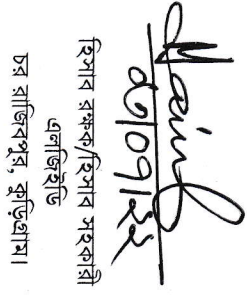 হিসাব রক্ষক/হিসাব সহকারী
এলজিইডি
চর রাজিবপুর, কুড়িগ্রাম।